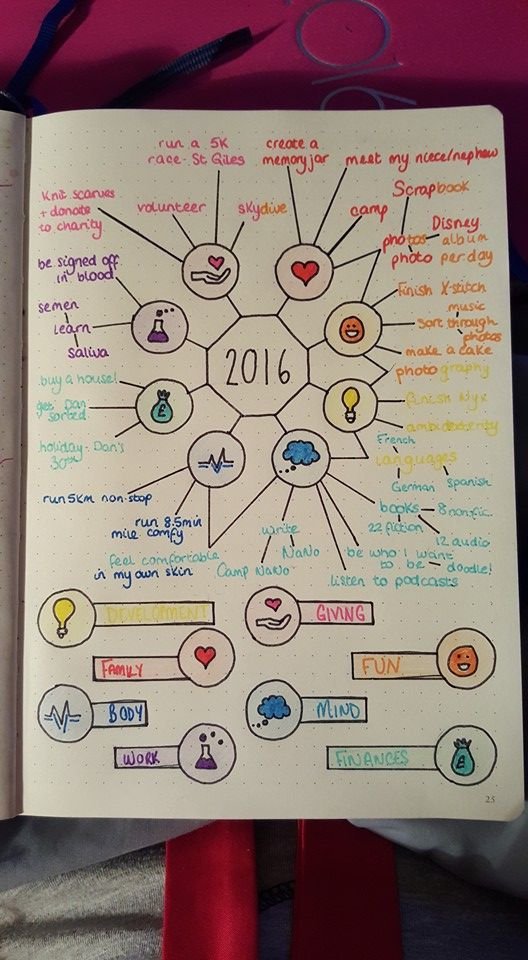 run a 5K
race - St Giles
create a
memory jar
meet my niece/nephew
Knit scarves
+ donate
to charity
volunteer
skydive
camp
Scrapbook
Disney
photos album
photo per day
be signed off
in blood
semen
learn
saliva
finish X-stitch
music
sort through
photos
make a cake
photography
2016
buy a house!
get Dan
sorted
holiday - Dan's
30th
finish Nyx
ambidexterity
French
languages
German
Spanish
run 5km non-stop
run 8.5min
mile comfy
feel comfortable
in my own skin
write
NaNo
Camp NaNo
books - 8 nonfic.
22 fiction
12 audio
be who I want
to be - doodle!
listen to podcasts
DEVELOPMENT
GIVING
FAMILY
FUN
BODY
MIND
WORK
FINANCES
£
£
25